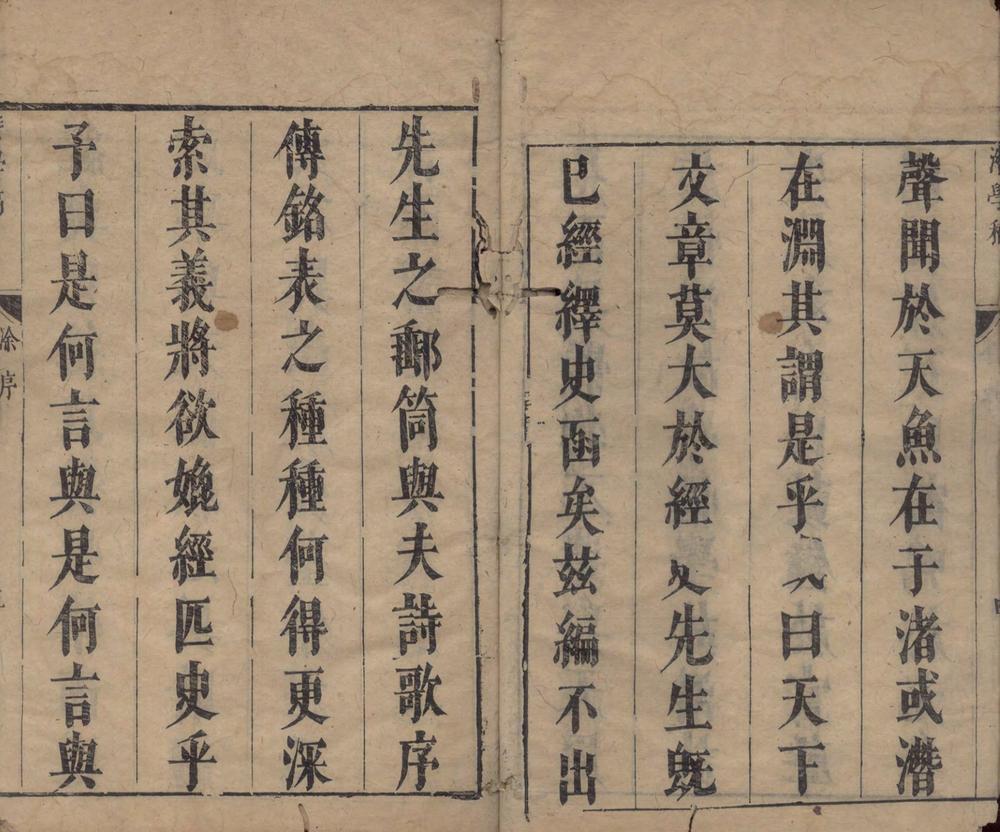 聲聞於天魚在于渚或潛
在淵其謂是乎曰天下
文章莫大於經史先生旣
已經繹史函矣茲編不出
先生之郵筒與夫詩歌序
傳銘表之種種何得更深
索其義將欲娩經匹史乎
予曰是何言與是何言與
序